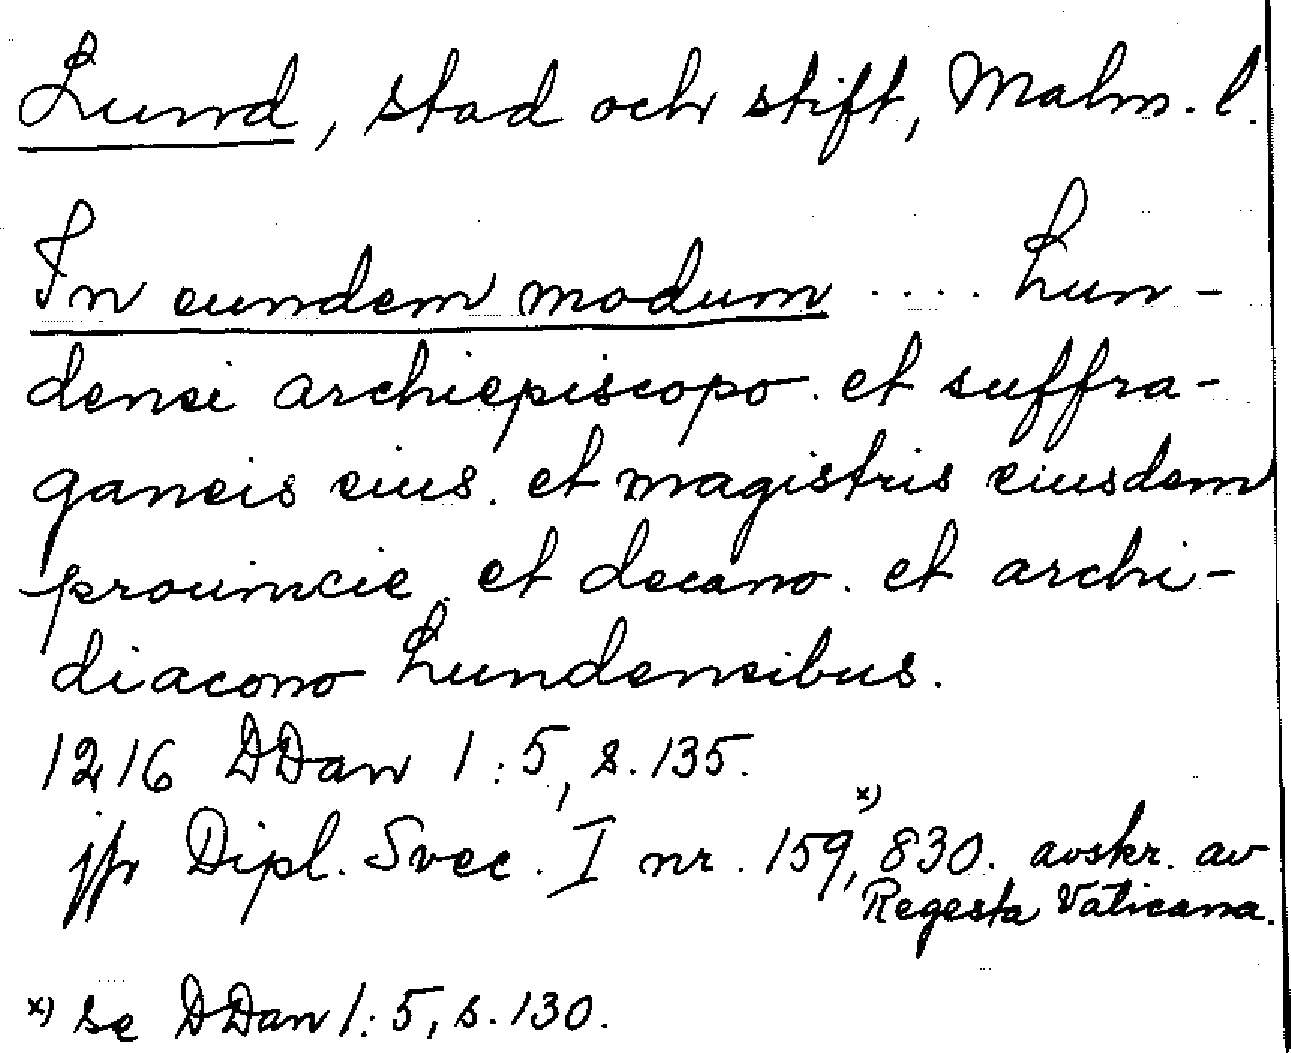 Lund, stad och stift, Malm. l.
In eundem modum .... Lun-
densi archiepiscopo. et suffra-
ganeis eius. et magistris eiusdem
prouincie. et decano. et archi-
diacono Lundensibus.
1216 DDan 1:5, s. 135.
jfr Dipl. Svec. I nr. 159,x) 830. avskr. av
Regesta Vaticana.
x) se DDan 1:5, s. 130.